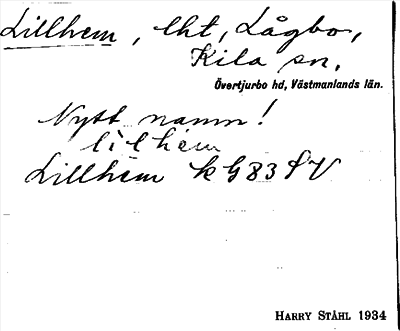 Lillhem, lht, Lågbo,
Kila sn.
Övertjurbo hd, Västmanlands län.
Nytt namn!
lilhem
Lillhem k G83 SV
HARRY STÅHL 1934